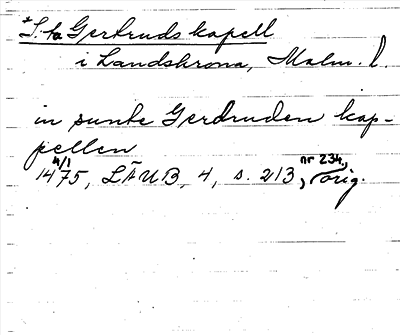 *S:ta Gertruds kapell
i Landskrona, Malm. l.
in sunte Gerdruden kap-
pellen
4/1 nr 234,
1475, LÄUB, 4, s. 213, orig.